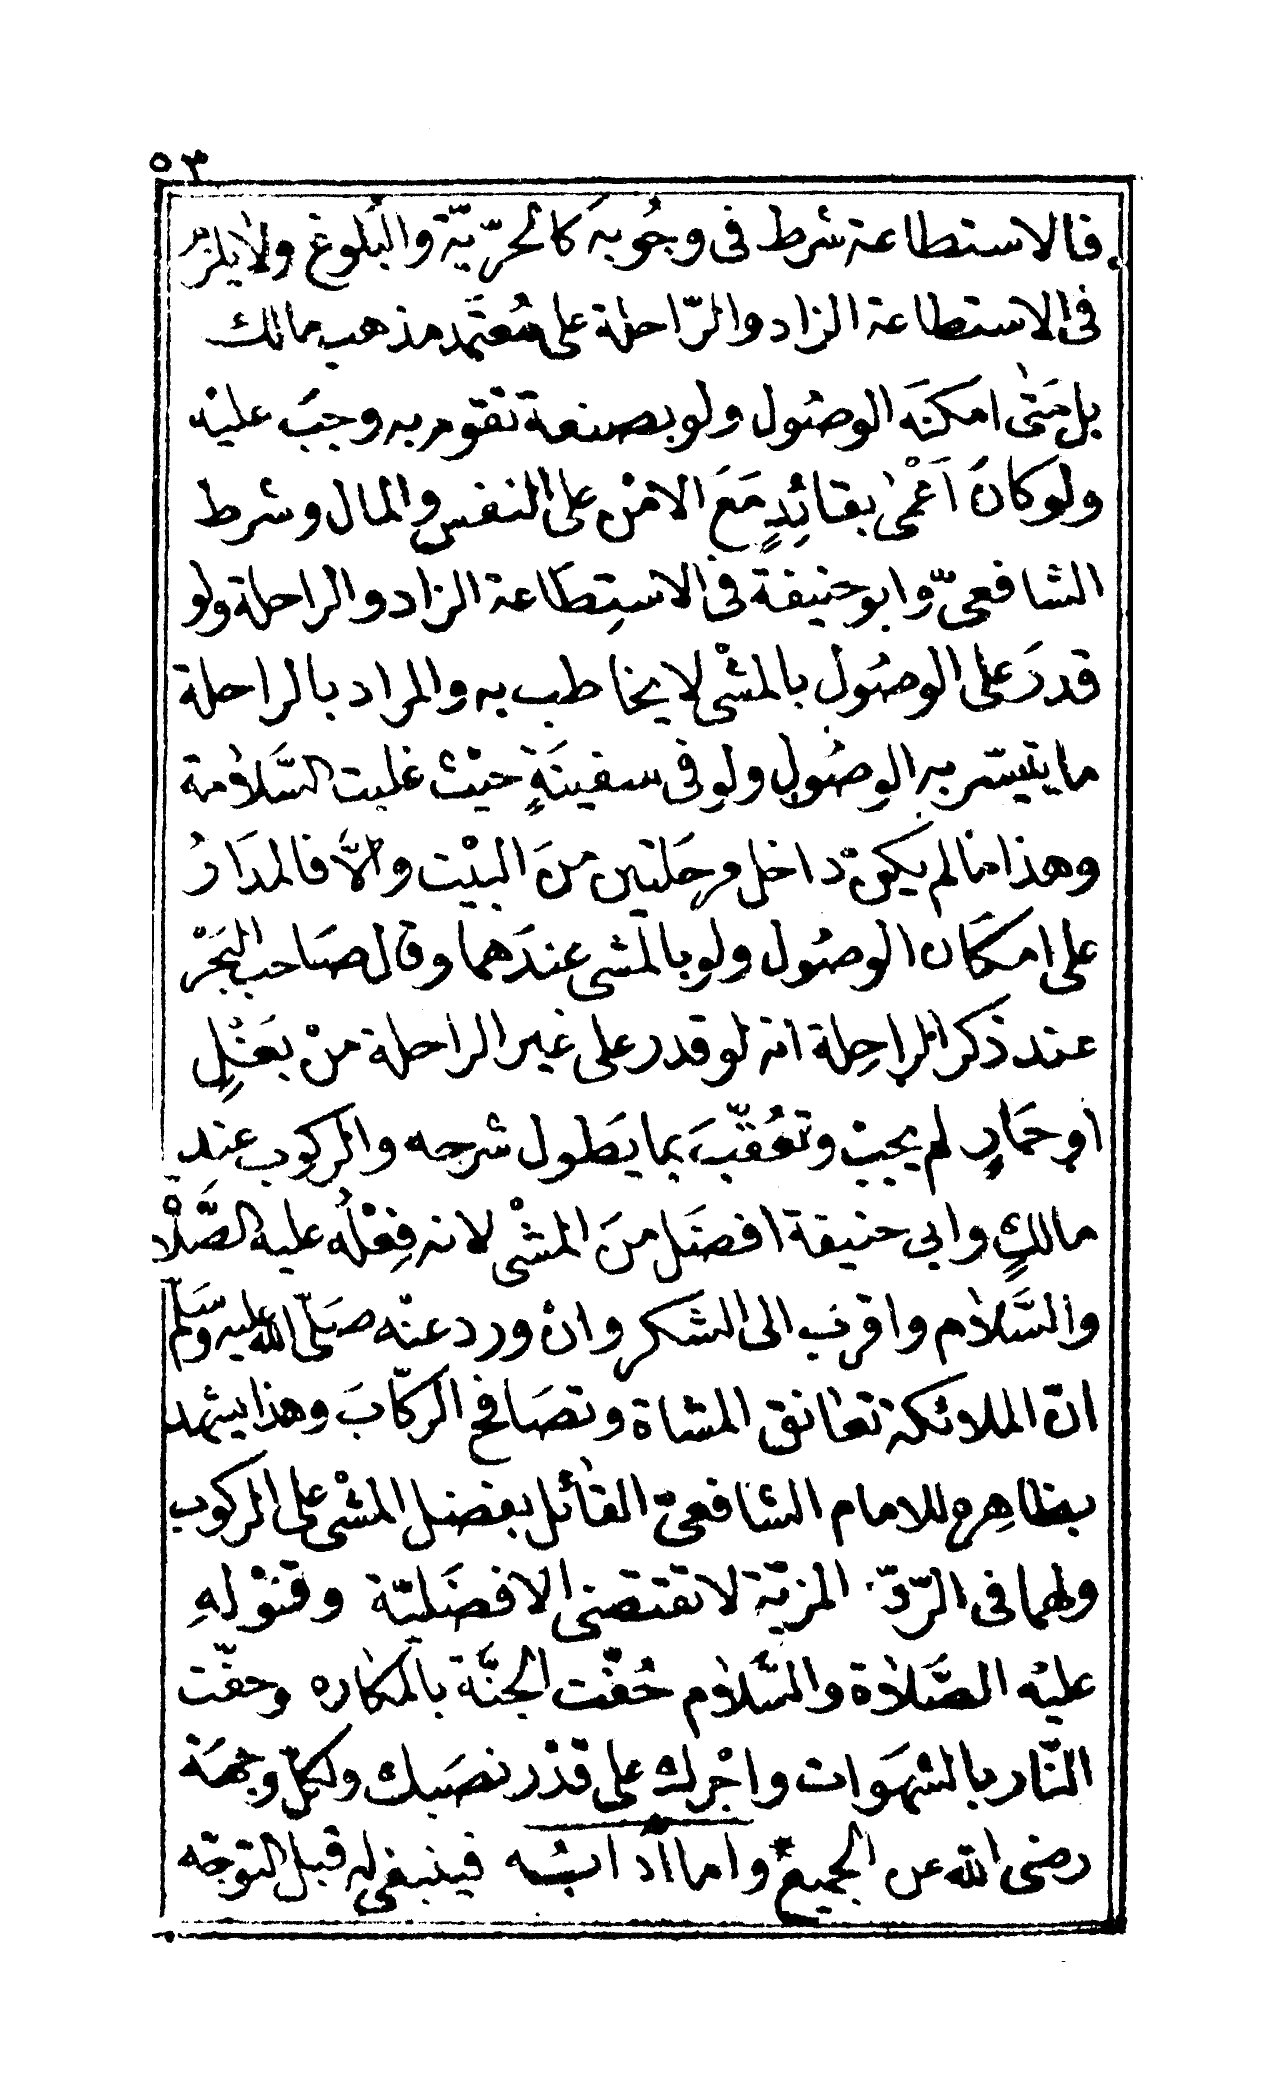 ٥٣
فالاستطاعة شرط فى وجُوبه كالحرّيّة والبُلوغ ولا يلزمُ
فى الاستطاعة الزاد والرّاحلة على مُعتمَد مذهب مالك
بل مَتىٰ امكنَه الوصُول ولو بصنعة تقوم به وجبَ عليْه
ولو كانَ اَعْمٰى بقائِدٍ مَعَ الامْن على النفس والمال وشرط
الشافعىّ وابو حنيفة فى الاستِطاعة الزاد والراحلة ولو
قدرَ على الوصُول بالمشْى لا يخاطب به والمراد بالراحلة
ما يتيسّر به الوصُول ولو فى سفينَةٍ حيْث غلبت السَّلامة
وهذا مالم يكن داخل مرحَلتين منَ البيْت والاَّ فالمدَارُ
على امكَان الوصُول ولو بالمشى عندَهما وقال صَاحب البَحْر
عند ذكر الراحِلة انه لو قدر على غير الراحلة منْ بغَلٍ
او حمَارٍ لم يجبْ وتعُقّبَ بما يَطول شرحه والركوب عند
مالكٍ وابي حنيفة افضَل منَ المشْى لانه فِعْلُه عليه الصَّلاة
والسَّلام واقرب الى الشكر وانْ ورد عنْه صَلّى الله عليه وسَلم
انّ الملائكة تعانق المشاة وتصَافح الركّابَ وهذا يشهد
بظاهِره للامام الشافعىّ القائل بفضل المشْى على الركوب
ولهما فى الرّدّ المزيّة لا تقتضى الافضَليّة وقوْلهِ
عليْه الصَّلاة والسَّلام حُفّت الجنَّة بالمكاره وحفّت
النّار بالشهَوات واجْرك على قدْر نصَبك ولكلّ وجهَة
رضى الله عن الجميع * واما آدابُه فينبغى له قبل التوجّه